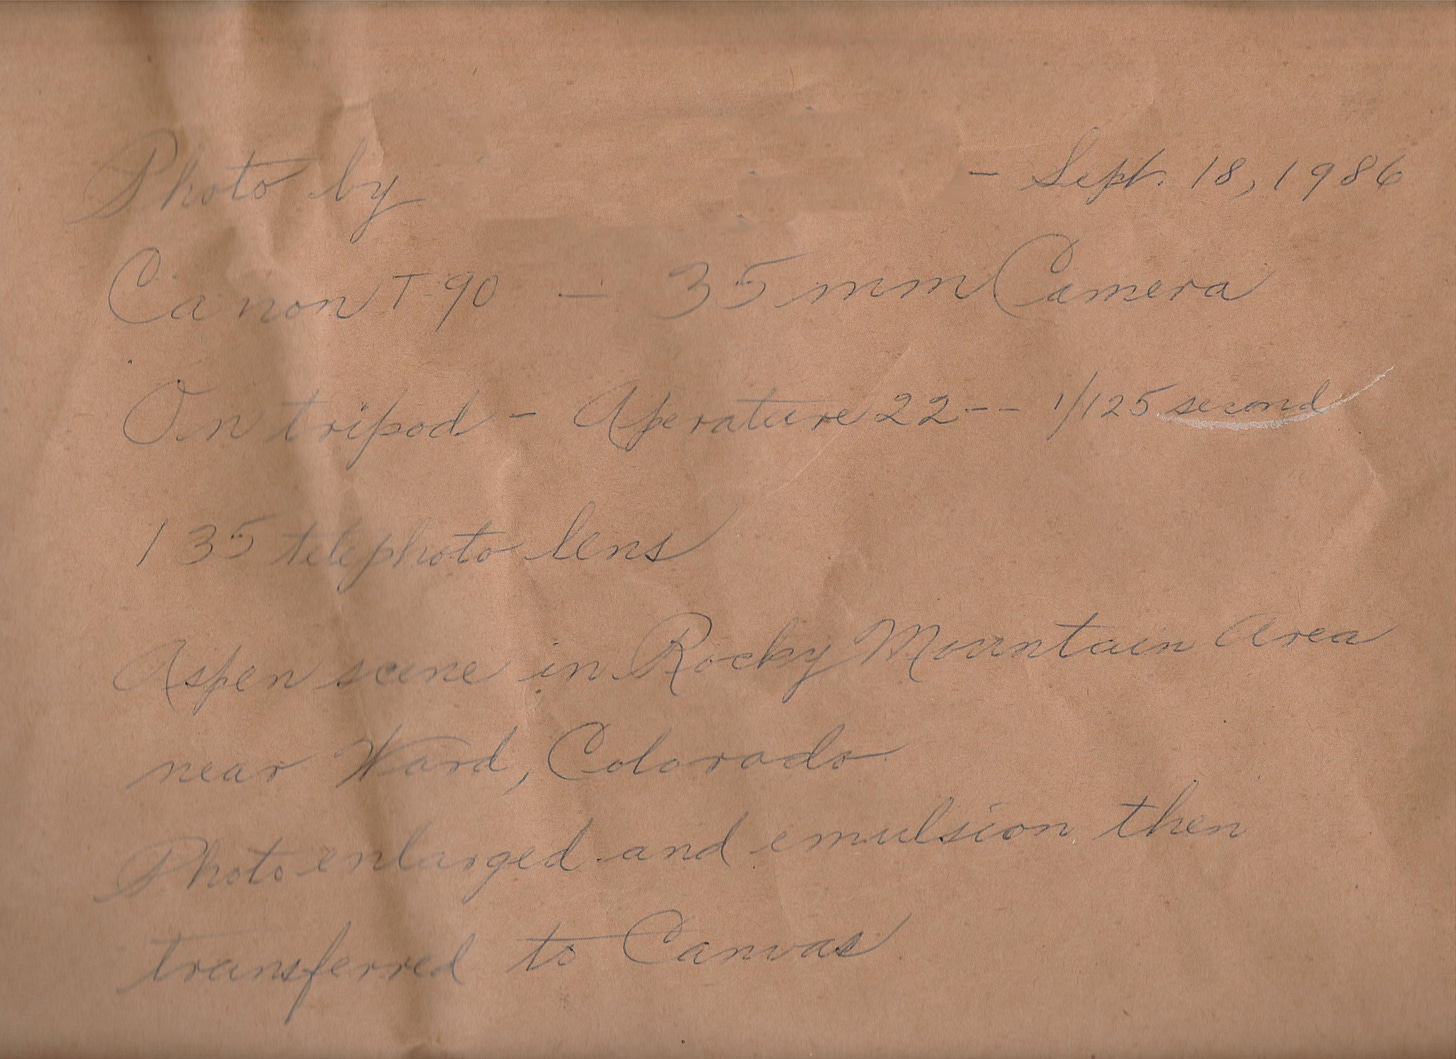 Photo by - Sept. 18, 1986
Canon T-90 — 35 mm Camera
On tripod - Aperature 22 -- 1/125 second
135 telephoto lens
Aspen scene in Rocky Mountain Area
near Ward, Colorado
Photo enlarged and emulsion then
transferred to Canvas.